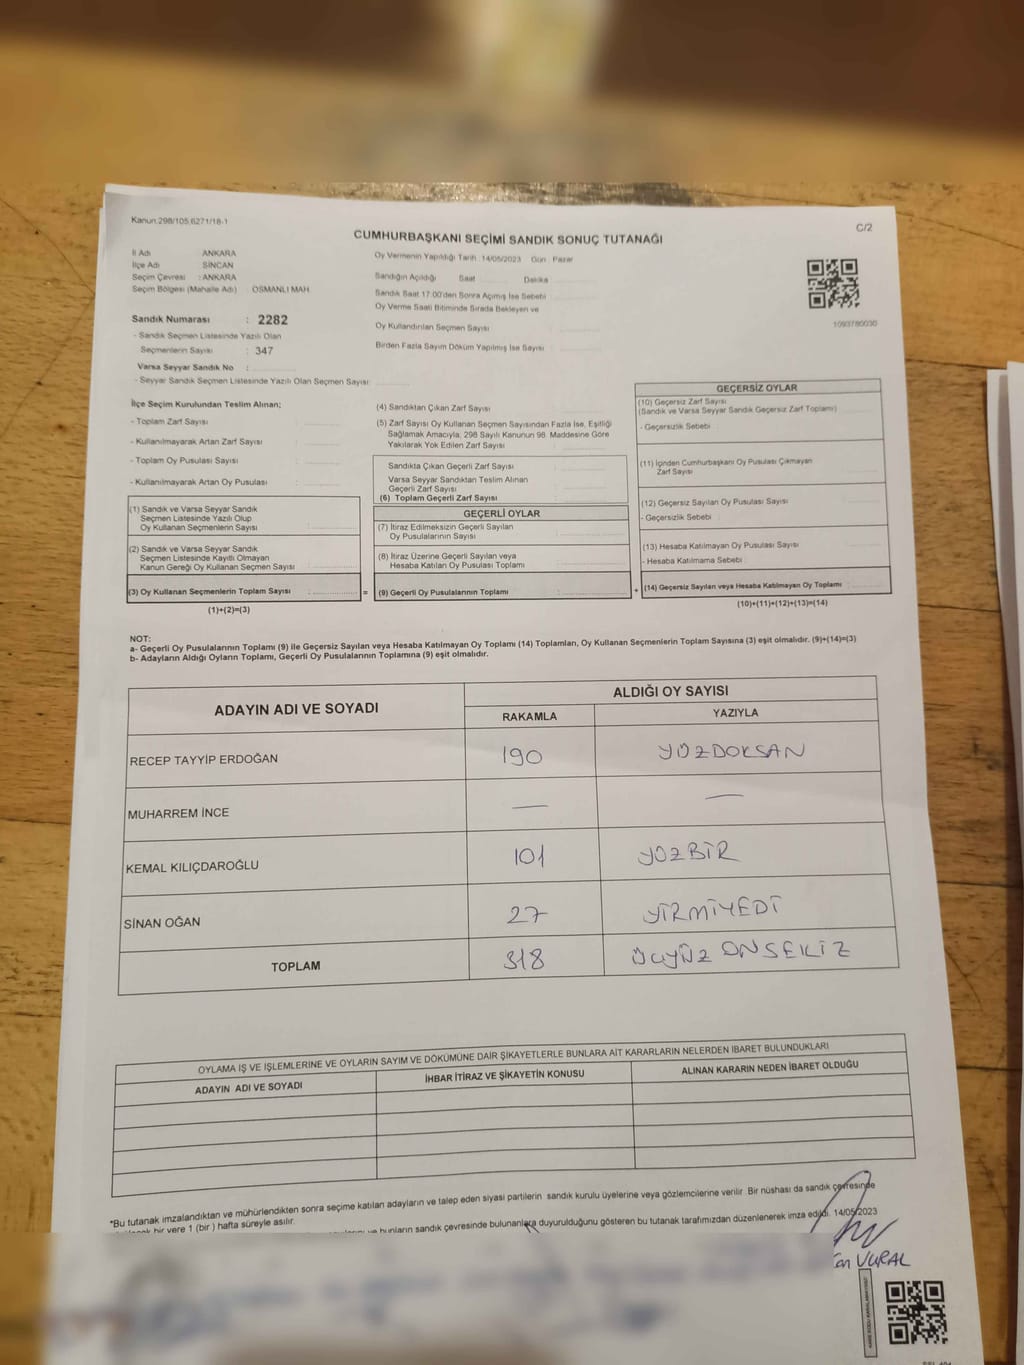 Kanun:298/105,6271/18-1
C/2
CUMHURBAŞKANI SEÇİMİ SANDIK SONUÇ TUTANAĞI
İl Adı ANKARA
İlçe Adı SİNCAN
Seçim Çevresi : ANKARA
Seçim Bölgesi (Mahalle Adı) : OSMANLI MAH
Sandık Numarası : 2282
- Sandık Seçmen Listesinde Yazılı Olan
Seçmenlerin Sayısı : 347
Varsa Seyyar Sandık No :
- Seyyar Sandık Seçmen Listesinde Yazılı Olan Seçmen Sayısı:
Oy Vermenin Yapıldığı Tarih :14/05/2023 Gün : Pazar
Sandığın Açıldığı Saat Dakika
Sandık Saat 17:00'den Sonra Açmış İse Sebebi
Oy Verme Saati Bitiminde Sırada Bekleyen ve
Oy Kullandırılan Seçmen Sayısı
Birden Fazla Sayım Döküm Yapılmış İse Sayısı
1093780030
İlçe Seçim Kurulundan Teslim Alınan;
- Toplam Zarf Sayısı
- Kullanılmayarak Artan Zarf Sayısı
- Toplam Oy Pusulası Sayısı
- Kullanılmayarak Artan Oy Pusulası
(1) Sandık ve Varsa Seyyar Sandık
Seçmen Listesinde Yazılı Olup
Oy Kullanan Seçmenlerin Sayısı
(2) Sandık ve Varsa Seyyar Sandık
Seçmen Listesinde Kayıtlı Olmayan
Kanun Gereği Oy Kullanan Seçmen Sayısı
(3) Oy Kullanan Seçmenlerin Toplam Sayısı : =
(1)+(2)=(3)
(4) Sandıktan Çıkan Zarf Sayısı
(5) Zarf Sayısı Oy Kullanan Seçmen Sayısından Fazla İse, Eşitliği
Sağlamak Amacıyla; 298 Sayılı Kanunun 98. Maddesine Göre
Yakılarak Yok Edilen Zarf Sayısı
Sandıkta Çıkan Geçerli Zarf Sayısı
Varsa Seyyar Sandıktan Teslim Alınan
Geçerli Zarf Sayısı
(6) Toplam Geçerli Zarf Sayısı
GEÇERLİ OYLAR
(7) İtiraz Edilmeksizin Geçerli Sayılan
Oy Pusulalarının Sayısı
(8) İtiraz Üzerine Geçerli Sayılan veya
Hesaba Katılan Oy Pusulası Toplamı
(9) Geçerli Oy Pusulalarının Toplamı : +
GEÇERSİZ OYLAR
(10) Geçersiz Zarf Sayısı
(Sandık ve Varsa Seyyar Sandık Geçersiz Zarf Toplamı)
- Geçersizlik Sebebi
(11) İçinden Cumhurbaşkanı Oy Pusulası Çıkmayan
Zarf Sayısı
(12) Geçersiz Sayılan Oy Pusulası Sayısı
- Geçersizlik Sebebi
(13) Hesaba Katılmayan Oy Pusulası Sayısı
- Hesaba Katılmama Sebebi
(14) Geçersiz Sayılan veya Hesaba Katılmayan Oy Toplamı
(10)+(11)+(12)+(13)=(14)
NOT:
a- Geçerli Oy Pusulalarının Toplamı (9) ile Geçersiz Sayılan veya Hesaba Katılmayan Oy Toplamı (14) Toplamları, Oy Kullanan Seçmenlerin Toplam Sayısına (3) eşit olmalıdır. (9)+(14)=(3)
b- Adayların Aldığı Oyların Toplamı, Geçerli Oy Pusulalarının Toplamına (9) eşit olmalıdır.
ADAYIN ADI VE SOYADI
ALDIĞI OY SAYISI
RAKAMLA YAZIYLA
RECEP TAYYİP ERDOĞAN 190 YÜZDOKSAN
MUHARREM İNCE — —
KEMAL KILIÇDAROĞLU 101 YÜZBİR
SİNAN OĞAN 27 YİRMİYEDİ
TOPLAM 318 ÜÇYÜZ ONSEKİZ
OYLAMA İŞ VE İŞLEMLERİNE VE OYLARIN SAYIM VE DÖKÜMÜNE DAİR ŞİKAYETLERLE BUNLARA AİT KARARLARIN NELERDEN İBARET BULUNDUKLARI
ADAYIN ADI VE SOYADI İHBAR İTİRAZ VE ŞİKAYETİN KONUSU ALINAN KARARIN NEDEN İBARET OLDUĞU
*Bu tutanak imzalandıktan ve mühürlendikten sonra seçime katılan adayların ve talep eden siyasi partilerin sandık kurulu üyelerine veya gözlemcilerine verilir. Bir nüshası da sandık çevresinde
bir yere 1 (bir) hafta süreyle asılır.
bunların sandık çevresinde bulunanlara duyurulduğunu gösteren bu tutanak tarafımızdan düzenlenerek imza edildi. 14/05/2023
VURAL